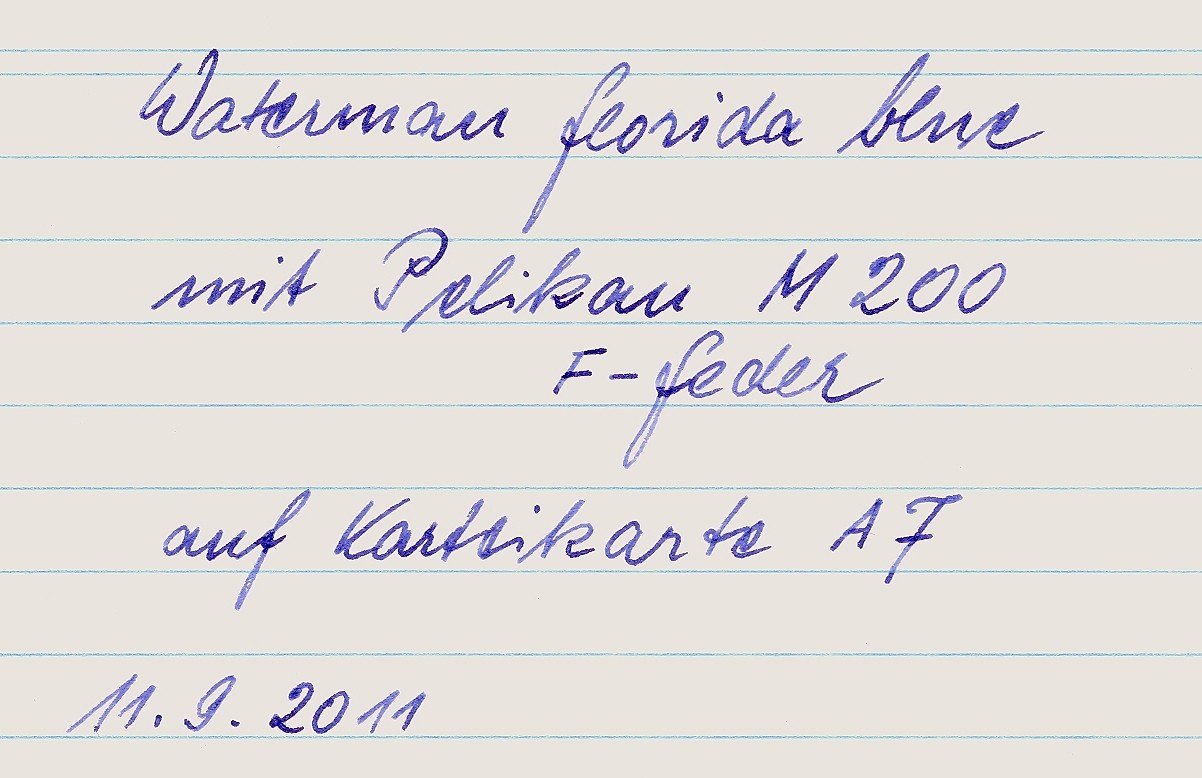 Waterman florida blue
mit Pelikan M 200
F-feder
auf Karteikarte A7
11. 9. 2011